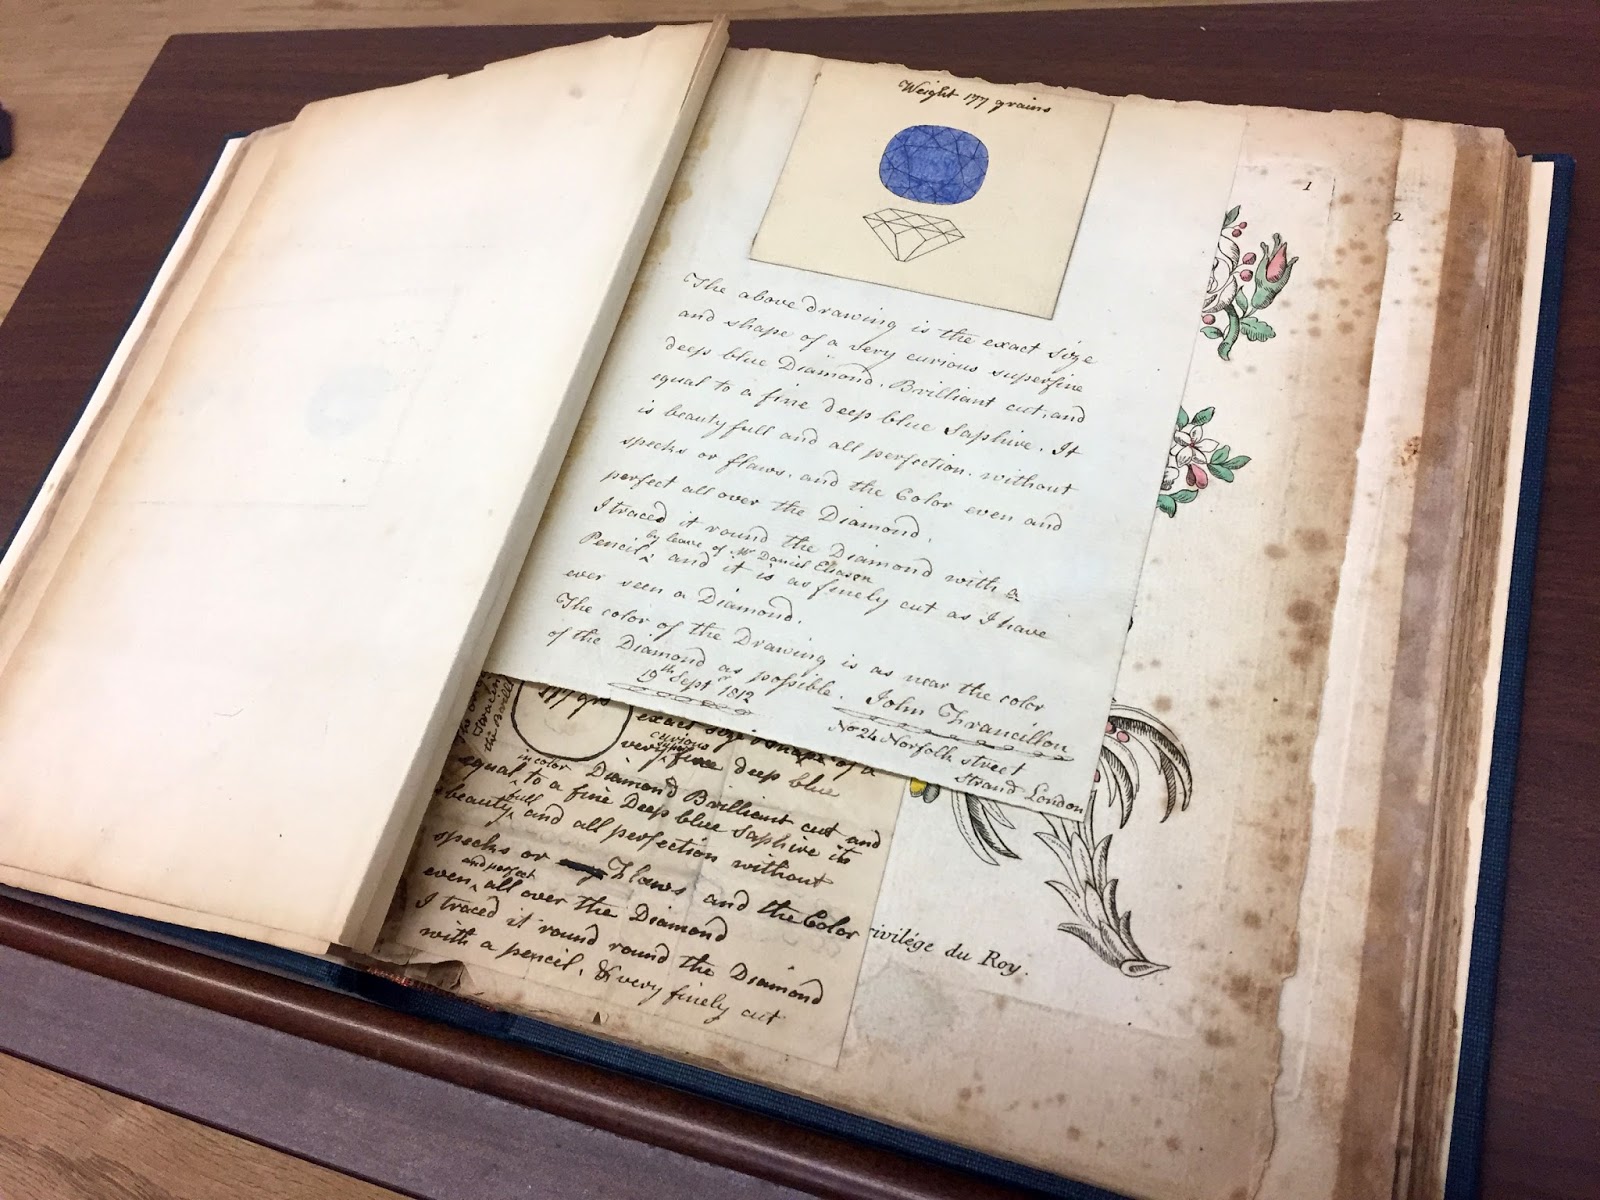 Weight 177 grains
The above drawing is the exact size
and shape of a very curious superfine
deep blue Diamond. Brilliant cut, and
equal to a fine deep blue Saphire. It
is beautyfull and all perfection. without
specks or flaws. and the Color even and
perfect all over the Diamond.
I traced it round the Diamond with a
by leave of Mr Daniel Eliason
Pencil ‸ and it is as finely cut as I have
ever seen a Diamond.
The color of the Drawing is as near the color
of the Diamond as possible.
19th Septr 1812
John Francillon
No 24 Norfolk street
Strand London
177 grs
exact size & shape of a
curious super
very ‸ fine deep blue
in color Diamond Brilliant cut and
equal ‸ to a fine Deep blue Saphire it is
full
beauty ‸ and all perfection without
specks or Flaws and the Color
and perfect
even ‸ all over the Diamond
I traced it round round the Diamond
with a pencil. & very finely cut
the Brill
1
2
rivilége du Roy.